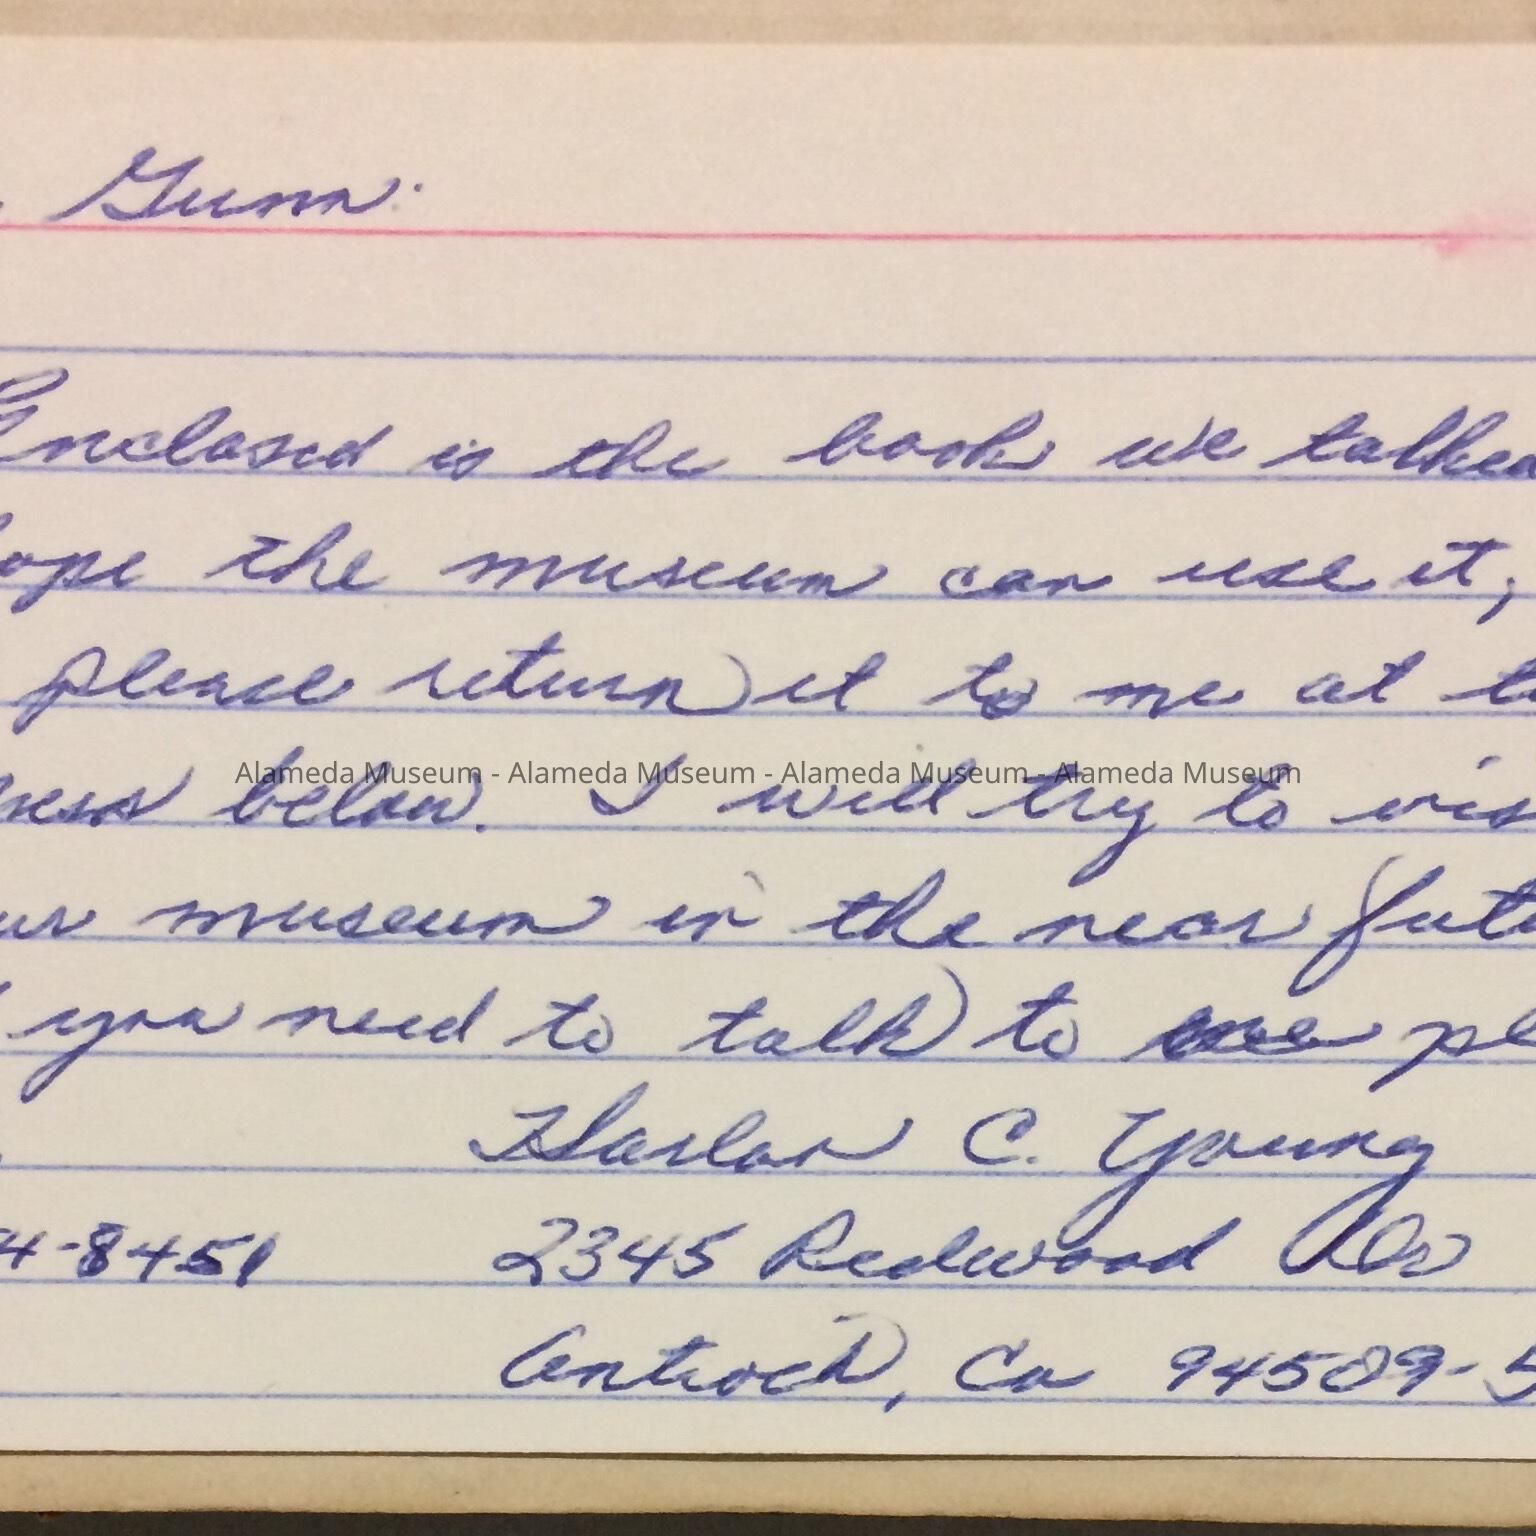 . Gunn:
Enclosed is the book we talked
ope the museum can use it;
please return it to me at t
ress below. I will try to vis
Alameda Museum - Alameda Museum - Alameda Museum - Alameda Museum
ur museum in the near futu
you need to talk to me pl
Harlan C. Young
4-8451 2345 Redwood Dr
Antioch, Ca 94509-5